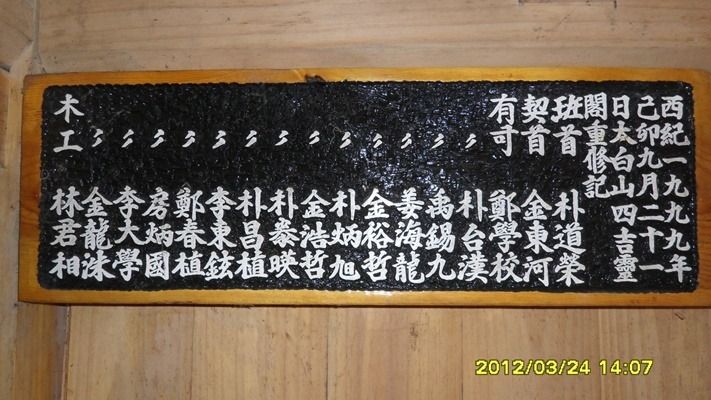 西紀一九九九年
己卯九月二十一
日太白山四吉靈
閣重修記
班首 朴道榮
契首 金東河
有司 鄭學校
〃 朴台漢
〃 禹錫九
〃 姜海龍
〃 金裕哲
〃 朴炳旭
〃 金浩哲
〃 朴泰暎
〃 朴昌植
〃 李東鉉
〃 鄭春植
〃 房炳國
〃 李大學
〃 金龍洙
木工 林君和
2012/03/24 14:07